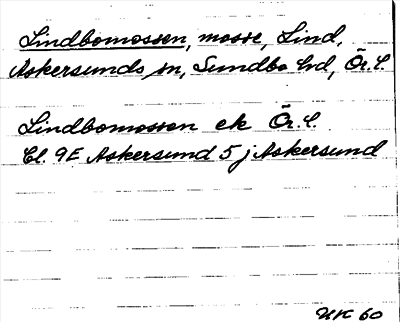 Lindbomossen, mosse, Lind,
Askersunds sn, Sundbo hd, Ör. l.
Lindbomossen ek Ör. l.
Bl. 9E Askersund 5 j Askersund
UK 60